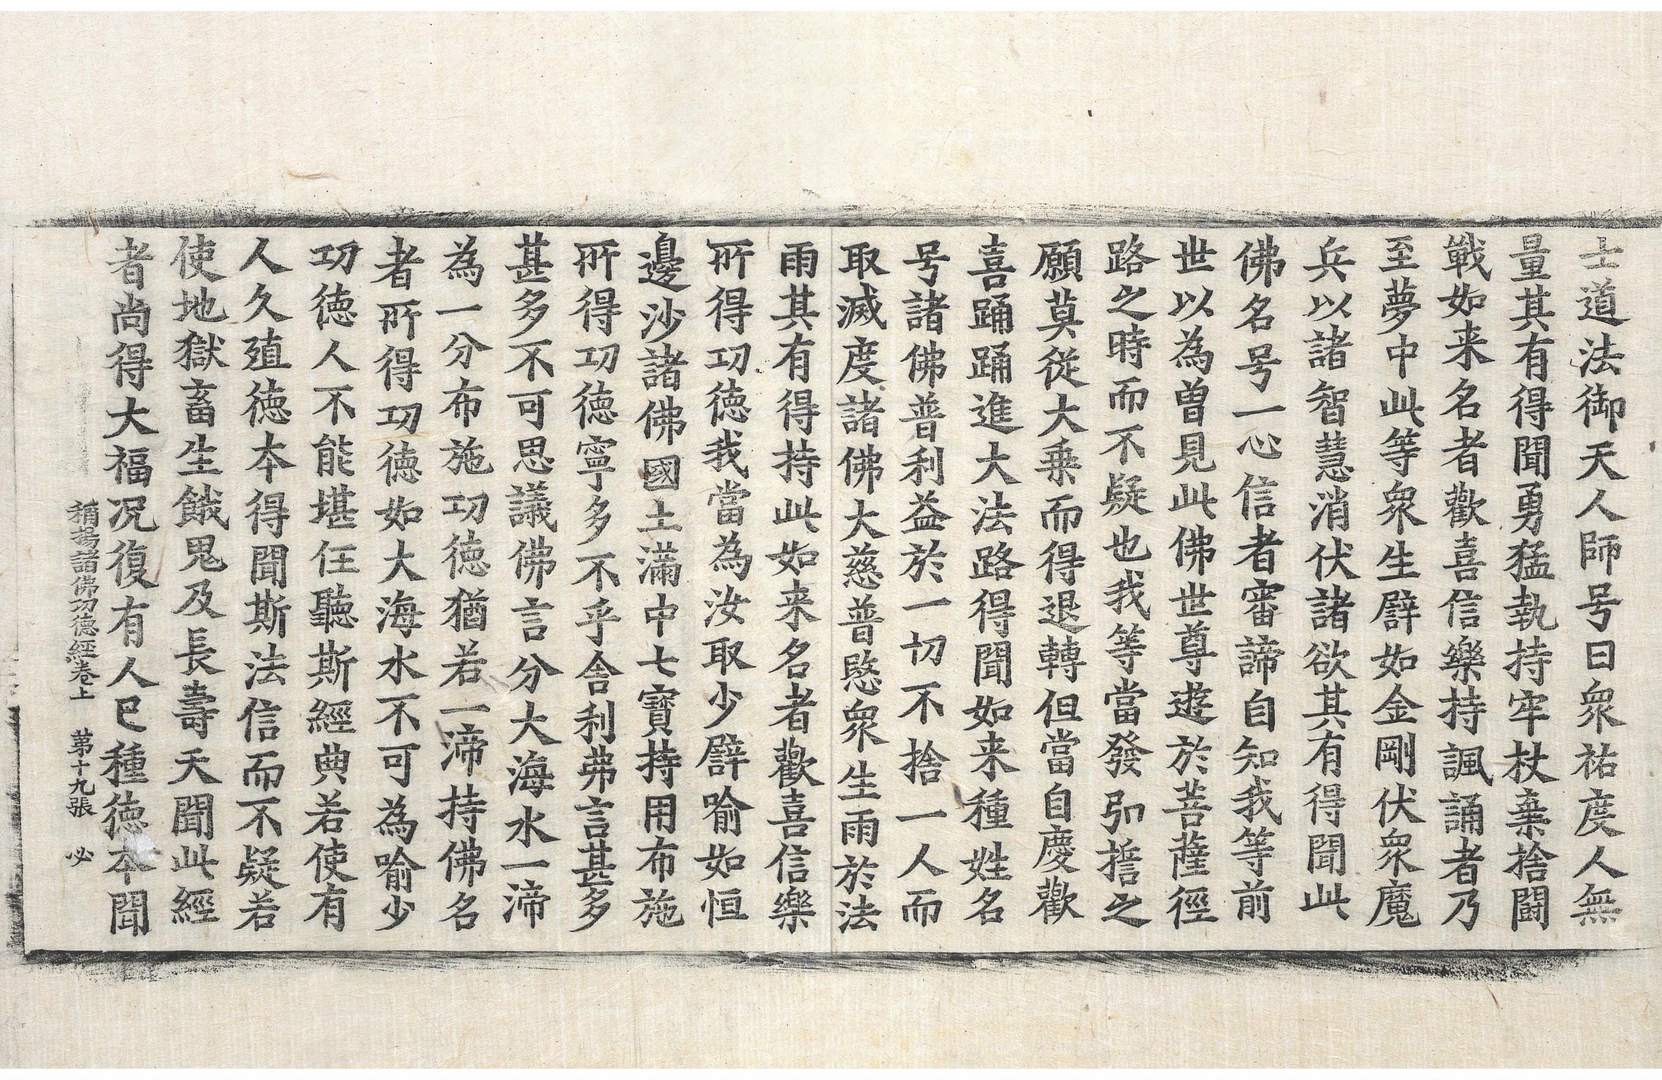 士道法御天人師号曰衆祐度人無
量其有得聞勇猛執持牢杖棄捨鬪
戰如来名者歡喜信樂持諷誦者乃
至夢中此等衆生譬如金剛伏衆魔
兵以諸智慧消伏諸欲其有得聞此
佛名号一心信者審諦自知我等前
世以為曽見此佛世尊遊於菩薩徑
路之時而不疑也我等當發弘誓之
願莫従大乗而得退轉但當自慶歡
喜踊踊進大法路得聞如来種姓名
号諸佛普利益於一切不捨一人而
取滅度諸佛大慈普愍衆生雨於法
雨其有得持此如来名者歡喜信樂
所得功德我當為汝取少譬喻如恒
邊沙諸佛國土滿中七寶持用布施
所得功德寧多不乎舍利弗言甚多
甚多不可思議佛言分大海水一渧
為一分布施功德猶若一渧持佛名
者所得功德如大海水不可為喻少
功德人不能堪任聽斯經典若使有
人久殖德本得聞斯法信而不疑若
使地獄畜生餓鬼及長壽天聞此經
者尚得大福况復有人已種德本聞
稱揚諸佛功德經卷上　第十九張　必